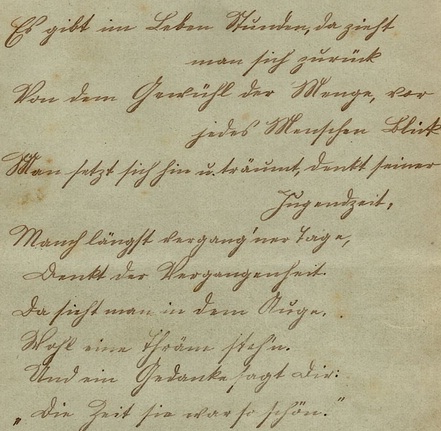 Es gibt im Leben Stunden, da zieht
man sich zurück
Von dem Gewühl der Menge, vor
jedes Menschen Blick
Man setzt sich hin u. träumt, denkt seiner
Jugendzeit,
Manch längst vergang'ner Tage,
Denkt der Vergangenheit.
Da sieht man in dem Auge.
Wohl eine Thräne steh'n.
Und ein Gedanke sagt Dir:
„Die Zeit sie war so schön."